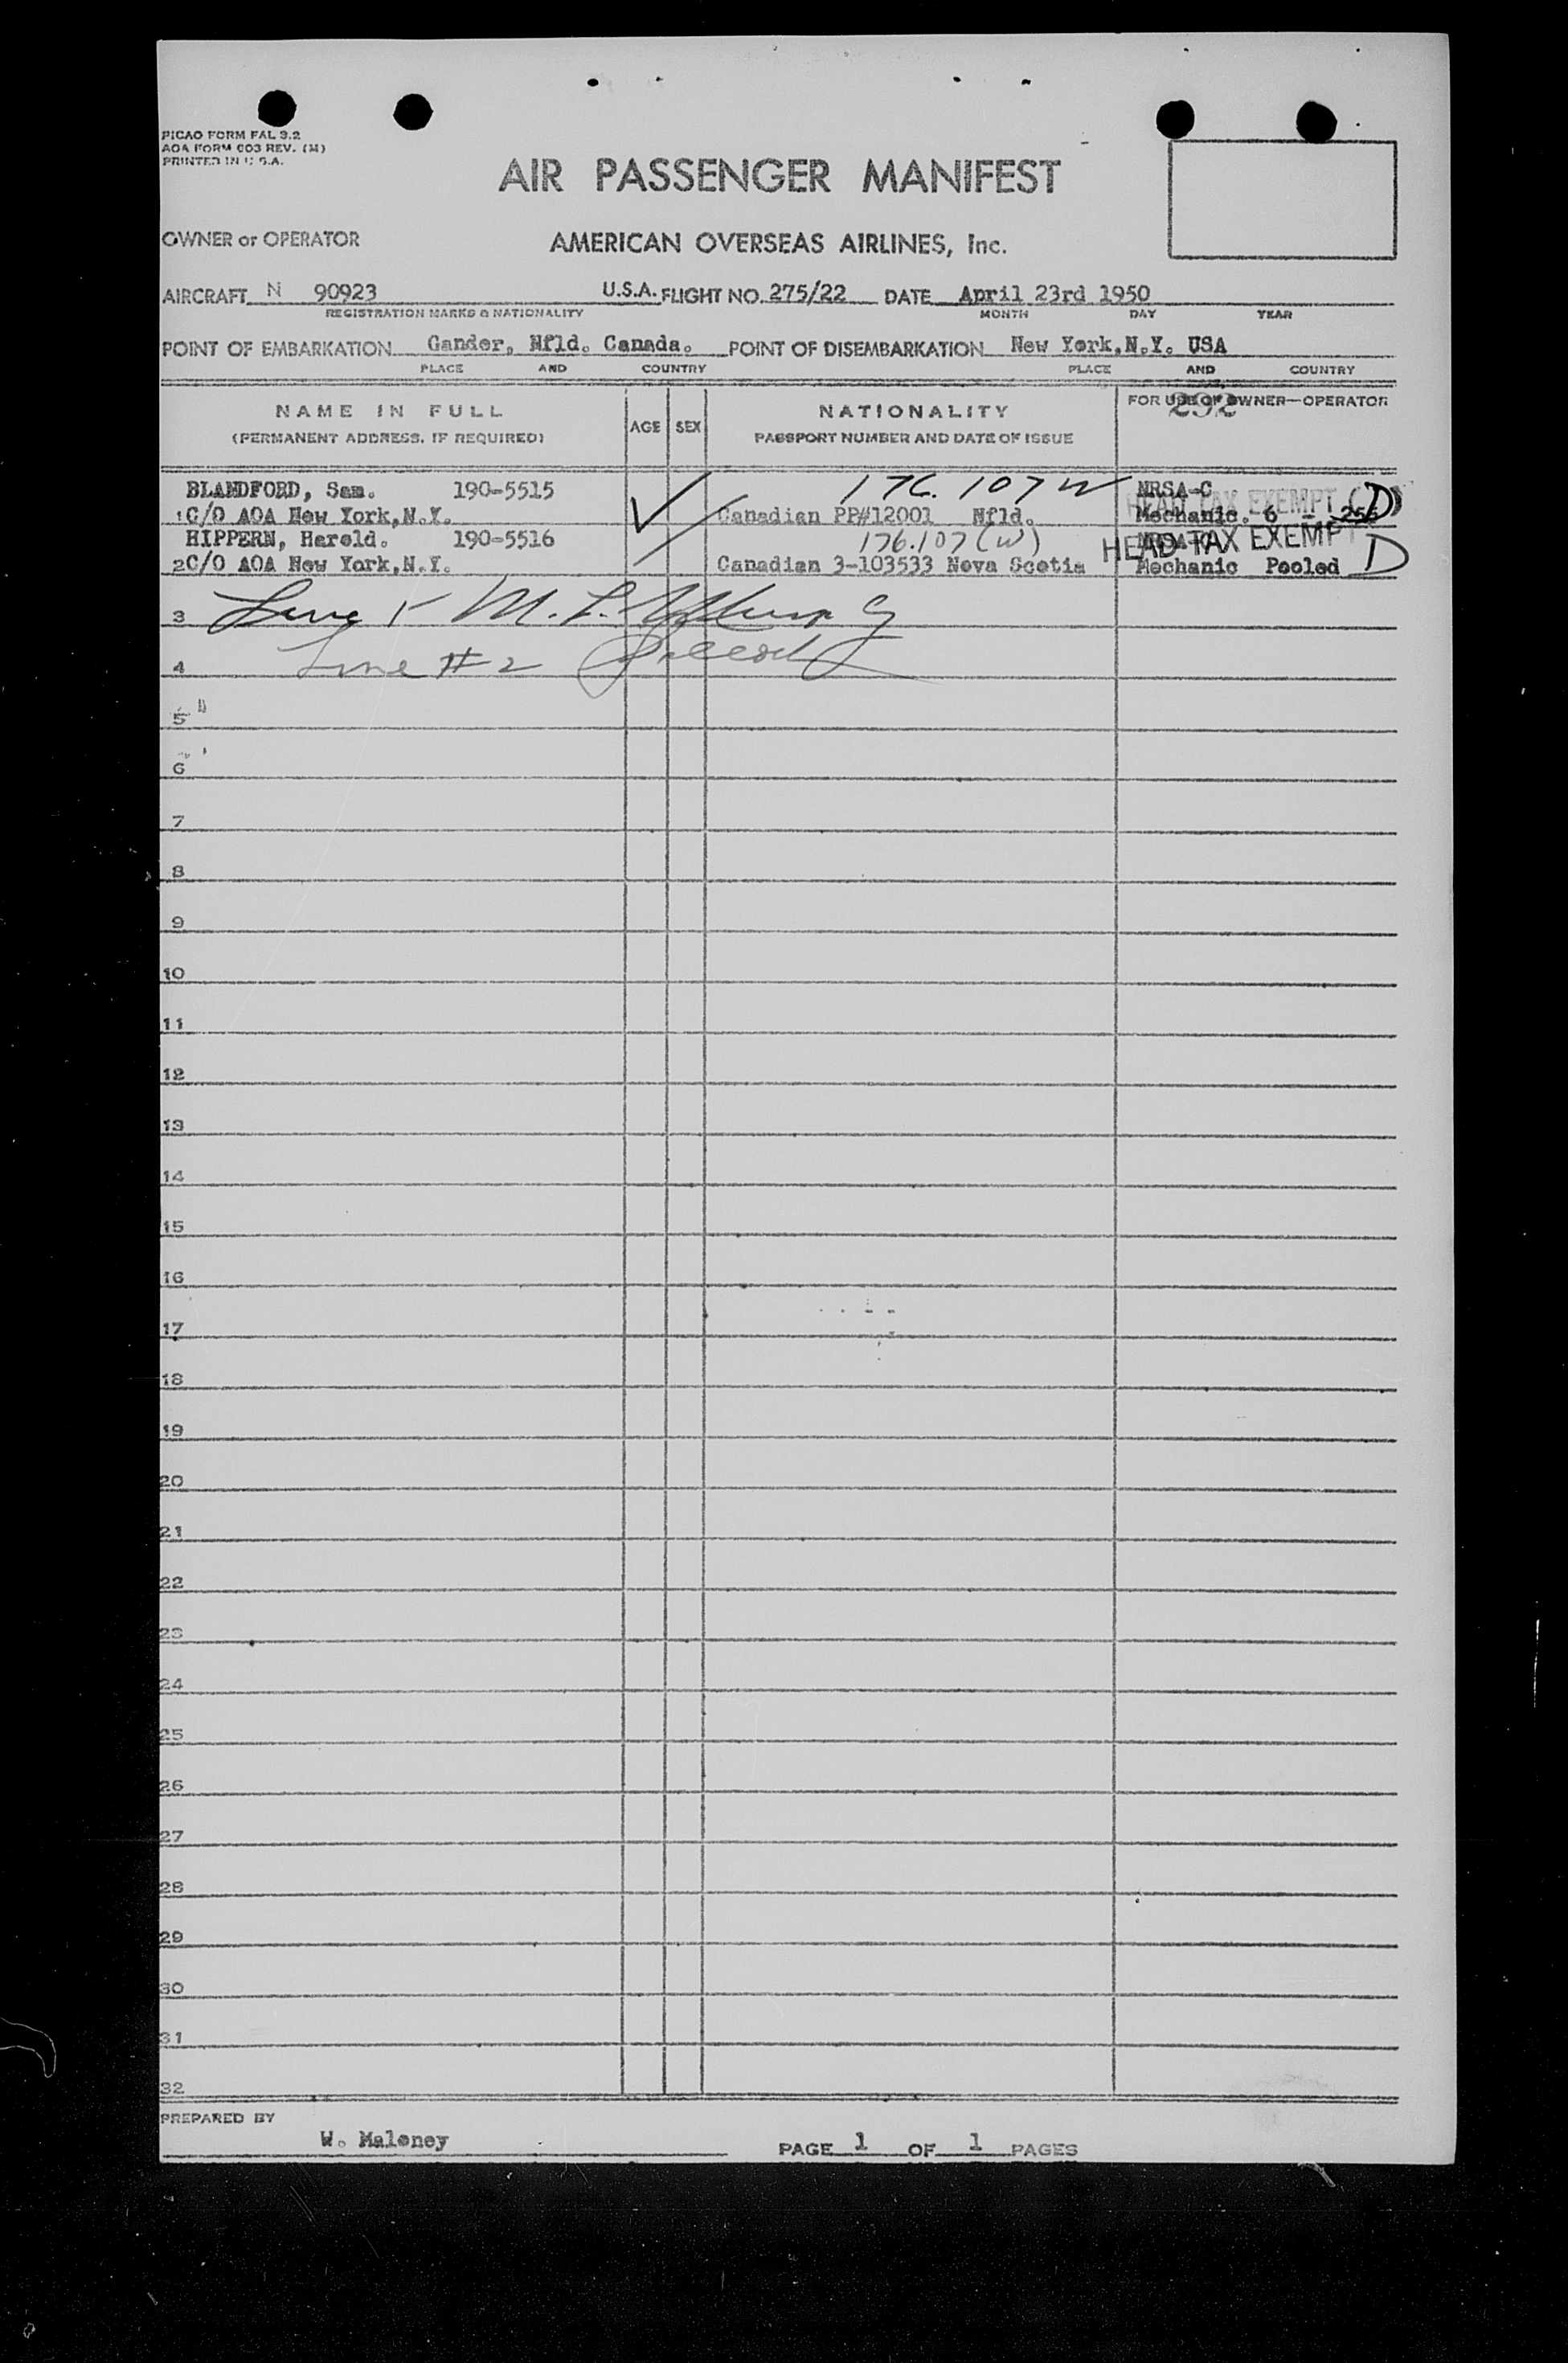 PICAO FORM FAL 3.2
AOA FORM 603 REV. (M)
PRINTED IN U.S.A.
AIR PASSENGER MANIFEST
OWNER or OPERATOR AMERICAN OVERSEAS AIRLINES, Inc.
AIRCRAFT N 90923 U.S.A. FLIGHT NO. 275/22 DATE April 23rd 1950
REGISTRATION MARKS & NATIONALITY MONTH DAY YEAR
POINT OF EMBARKATION Gander, Nfld. Canada. POINT OF DISEMBARKATION New York,N.Y. USA
PLACE AND COUNTRY PLACE AND COUNTRY
NAME IN FULL AGE SEX NATIONALITY FOR USE OF OWNER—OPERATOR
292
(PERMANENT ADDRESS, IF REQUIRED) PASSPORT NUMBER AND DATE OF ISSUE
BLANDFORD, Sam. 190-5515 176.107 W NRSA-C
HEAD TAX EXEMPT (D)
1 C/O AOA New York,N.Y. Canadian PP#12001 Nfld. Mechanic. 6 -
HIPPERN, Harold. 190-5516 176.107 (W) NRSA
HEAD TAX EXEMPT D
2 C/O AOA New York,N.Y. Canadian 3-103533 Nova Scotia Mechanic Pooled
3 Line 1 M. L.
4 Line #2
5
6
7
8
9
10
11
12
13
14
15
16
17
18
19
20
21
22
23
24
25
26
27
28
29
30
31
32
PREPARED BY
W. Maloney PAGE 1 OF 1 PAGES